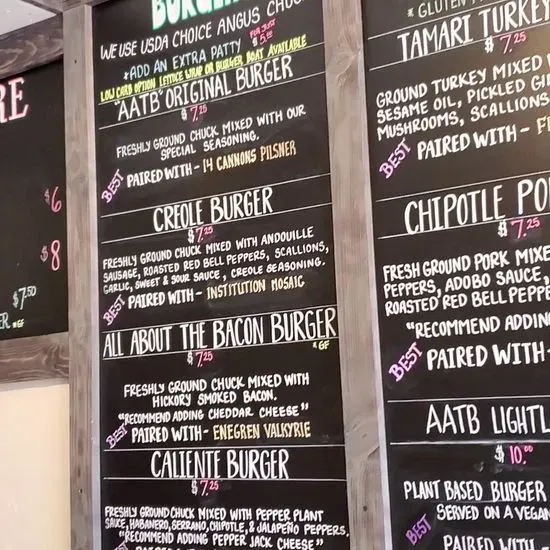 RE
$6
$8
$7.50
*GF
WE USE USDA CHOICE ANGUS CHUC
*ADD AN EXTRA PATTY FOR JUST $5.00
LOW CARB OPTION LETTUCE WRAP OR BURGER BOAT AVAILABLE
"AATB" ORIGINAL BURGER
$7.25
FRESHLY GROUND CHUCK MIXED WITH OUR
SPECIAL SEASONING.
BEST PAIRED WITH - 14 CANNONS PILSNER
CREOLE BURGER
$7.25
FRESHLY GROUND CHUCK MIXED WITH ANDOUILLE
SAUSAGE, ROASTED RED BELL PEPPERS, SCALLIONS,
GARLIC, SWEET & SOUR SAUCE, CREOLE SEASONING.
BEST PAIRED WITH - INSTITUTION MOSAIC
ALL ABOUT THE BACON BURGER
$7.25
*GF
FRESHLY GROUND CHUCK MIXED WITH
HICKORY SMOKED BACON.
"RECOMMEND ADDING CHEDDAR CHEESE"
BEST PAIRED WITH - ENEGREN VALKYRIE
CALIENTE BURGER
$7.25
FRESHLY GROUND CHUCK MIXED WITH PEPPER PLANT
SAUCE, HABANERO, SERRANO, CHIPOTLE, & JALAPEÑO PEPPERS.
"RECOMMEND ADDING PEPPER JACK CHEESE"
* GLUTEN
TAMARI TURKEY
$7.25
GROUND TURKEY MIXED
SESAME OIL, PICKLED GI
MUSHROOMS, SCALLIONS
BEST PAIRED WITH -
CHIPOTLE PO
$7.25
FRESH GROUND PORK MIXE
PEPPERS, ADOBO SAUCE,
ROASTED RED BELL PEPPE
"RECOMMEND ADDING
BEST PAIRED WITH -
AATB LIGHTL
$10.00
PLANT BASED BURGER
SERVED ON A VEGAN
BEST PAIRED WITH -